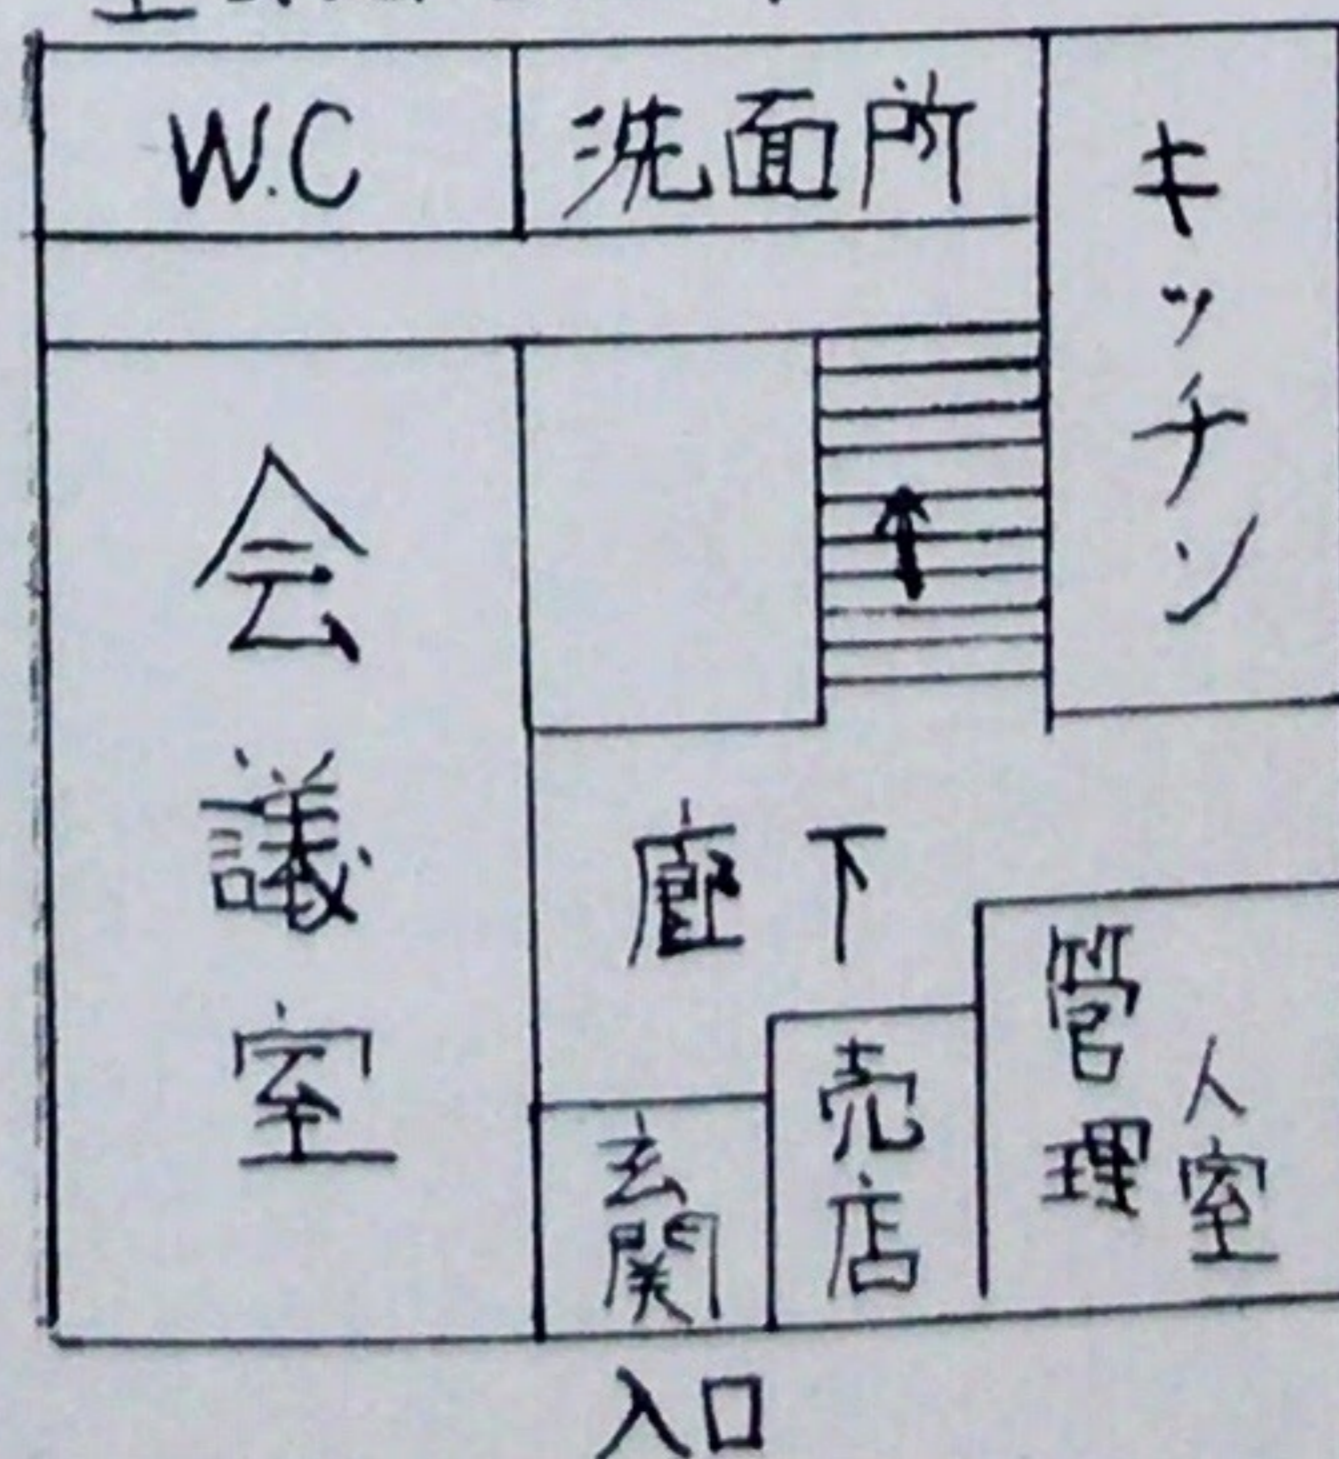 W.C
洗面所
キッチン
会議室
廊下
管理人室
売店
玄関
入口